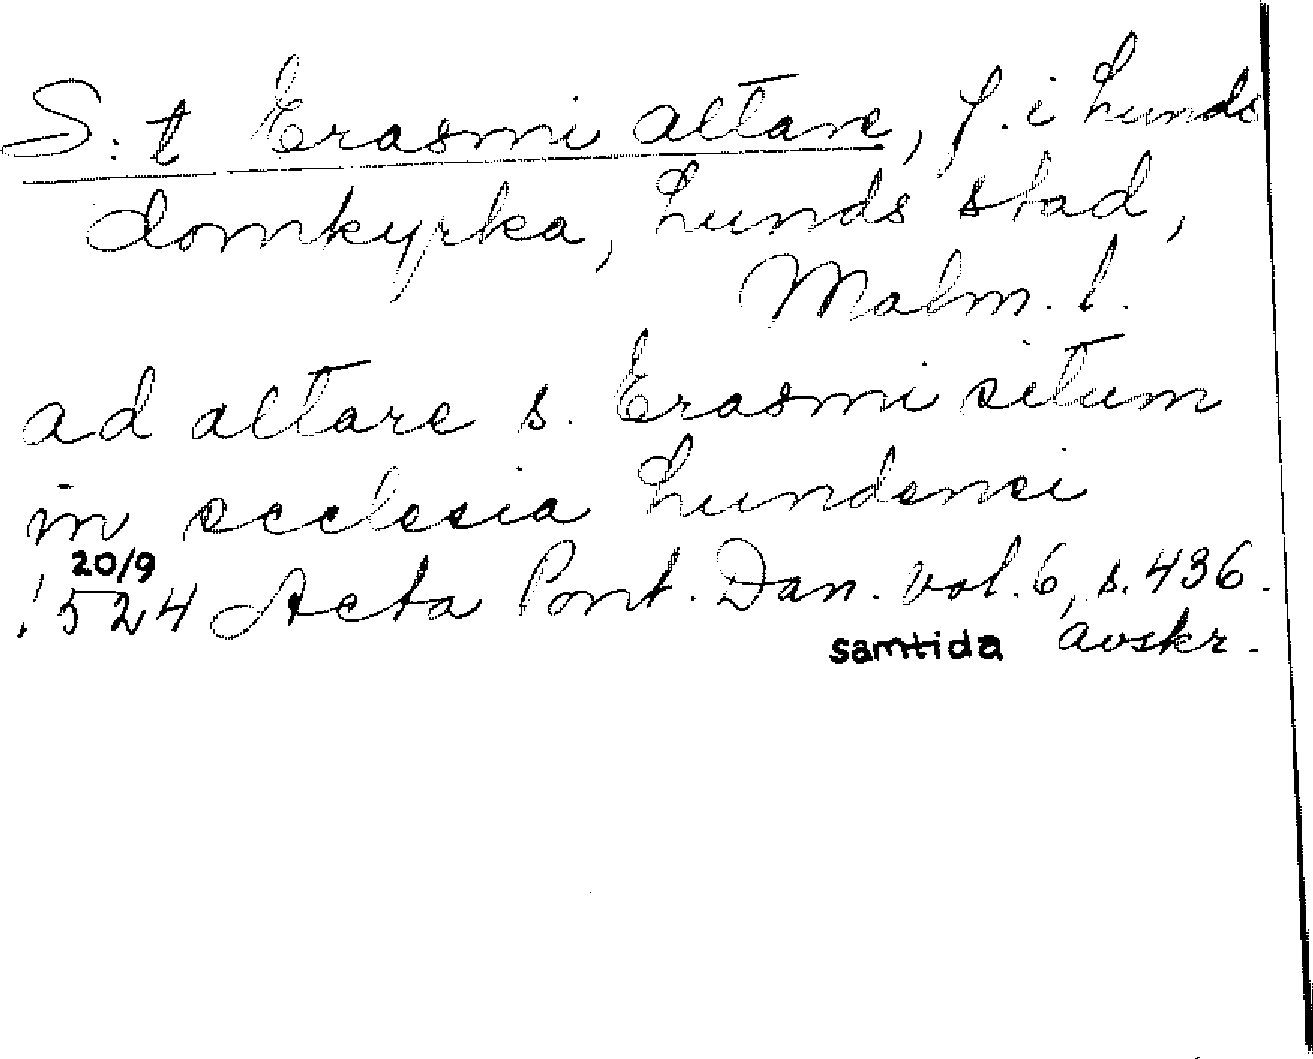 S:t Erasmi altare, f. i Lunds
domkyrka, Lunds stad,
Malm. l.
ad altare s. Erasmi situm
in ecclesia Lundensi
20/9
1524 Acta Pont. Dan. vol. 6, s. 436.
samtida avskr.